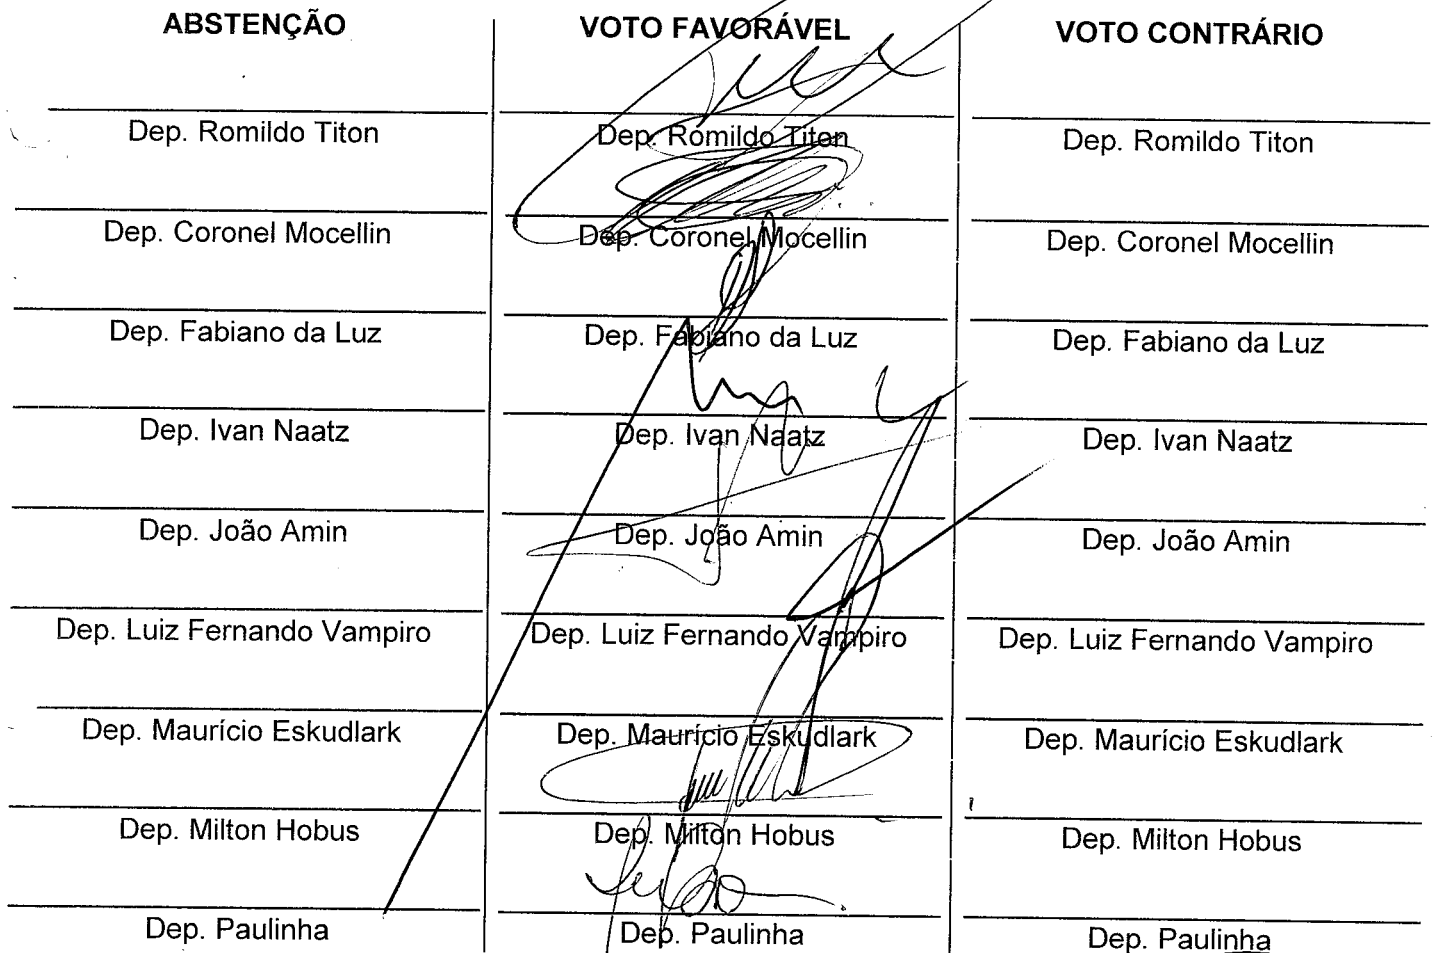 ABSTENÇÃO VOTO FAVORÁVEL VOTO CONTRÁRIO
Dep. Romildo Titon Dep. Romildo Titon Dep. Romildo Titon
Dep. Coronel Mocellin Dep. Coronel Mocellin Dep. Coronel Mocellin
Dep. Fabiano da Luz Dep. Fabiano da Luz Dep. Fabiano da Luz
Dep. Ivan Naatz Dep. Ivan Naatz Dep. Ivan Naatz
Dep. João Amin Dep. João Amin Dep. João Amin
Dep. Luiz Fernando Vampiro Dep. Luiz Fernando Vampiro Dep. Luiz Fernando Vampiro
Dep. Maurício Eskudlark Dep. Maurício Eskudlark Dep. Maurício Eskudlark
Dep. Milton Hobus Dep. Milton Hobus Dep. Milton Hobus
Dep. Paulinha Dep. Paulinha Dep. Paulinha